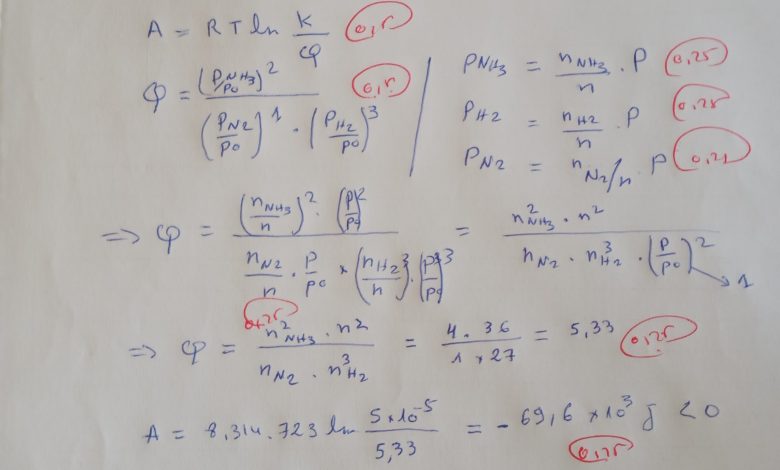 A = RT ln K/φ 0,5
φ = (P_NH3/P°)^2 / ((P_N2/P°)^1 · (P_H2/P°)^3) 0,5
P_NH3 = n_NH3/n · P 0,25
P_H2 = n_H2/n · P 0,25
P_N2 = n_N2/n · P 0,25
=> φ = (n_NH3/n)^2 · (P/P°)^2 / (n_N2/n · P/P° × (n_H2/n)^3 · (P/P°)^3) = n^2_NH3 · n^2 / (n_N2 · n^3_H2 · (P/P°)^2) → 1
0,25
=> φ = n^2_NH3 · n^2 / (n_N2 · n^3_H2) = 4 · 36 / (1 × 27) = 5,33 0,25
A = 8,314 · 723 ln 5×10^-5 / 5,33 = - 69,6 × 10^3 J < 0